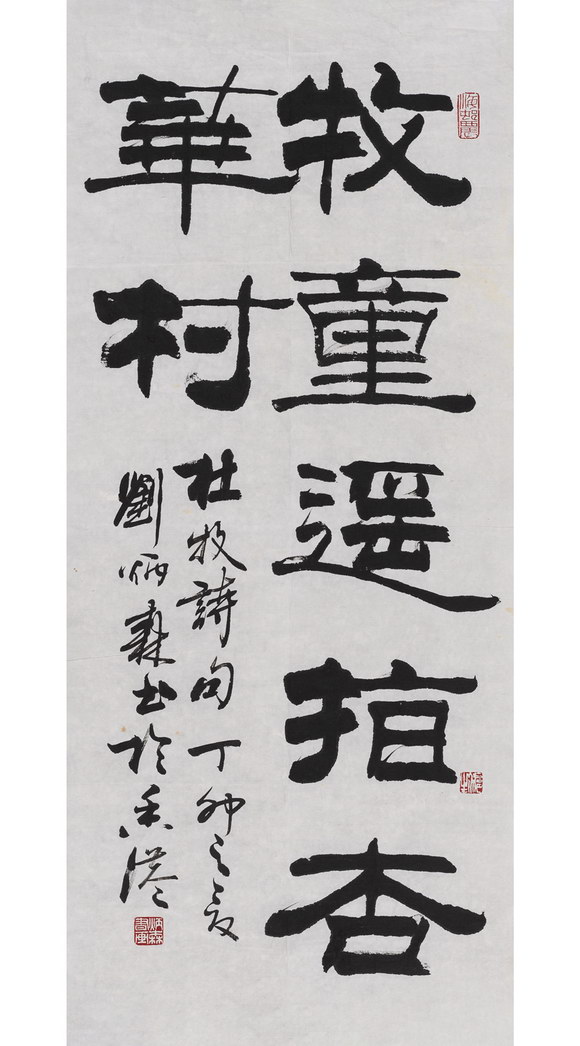 牧童遙指杏
華村
杜牧詩句丁卯之夏
劉炳森書於香港